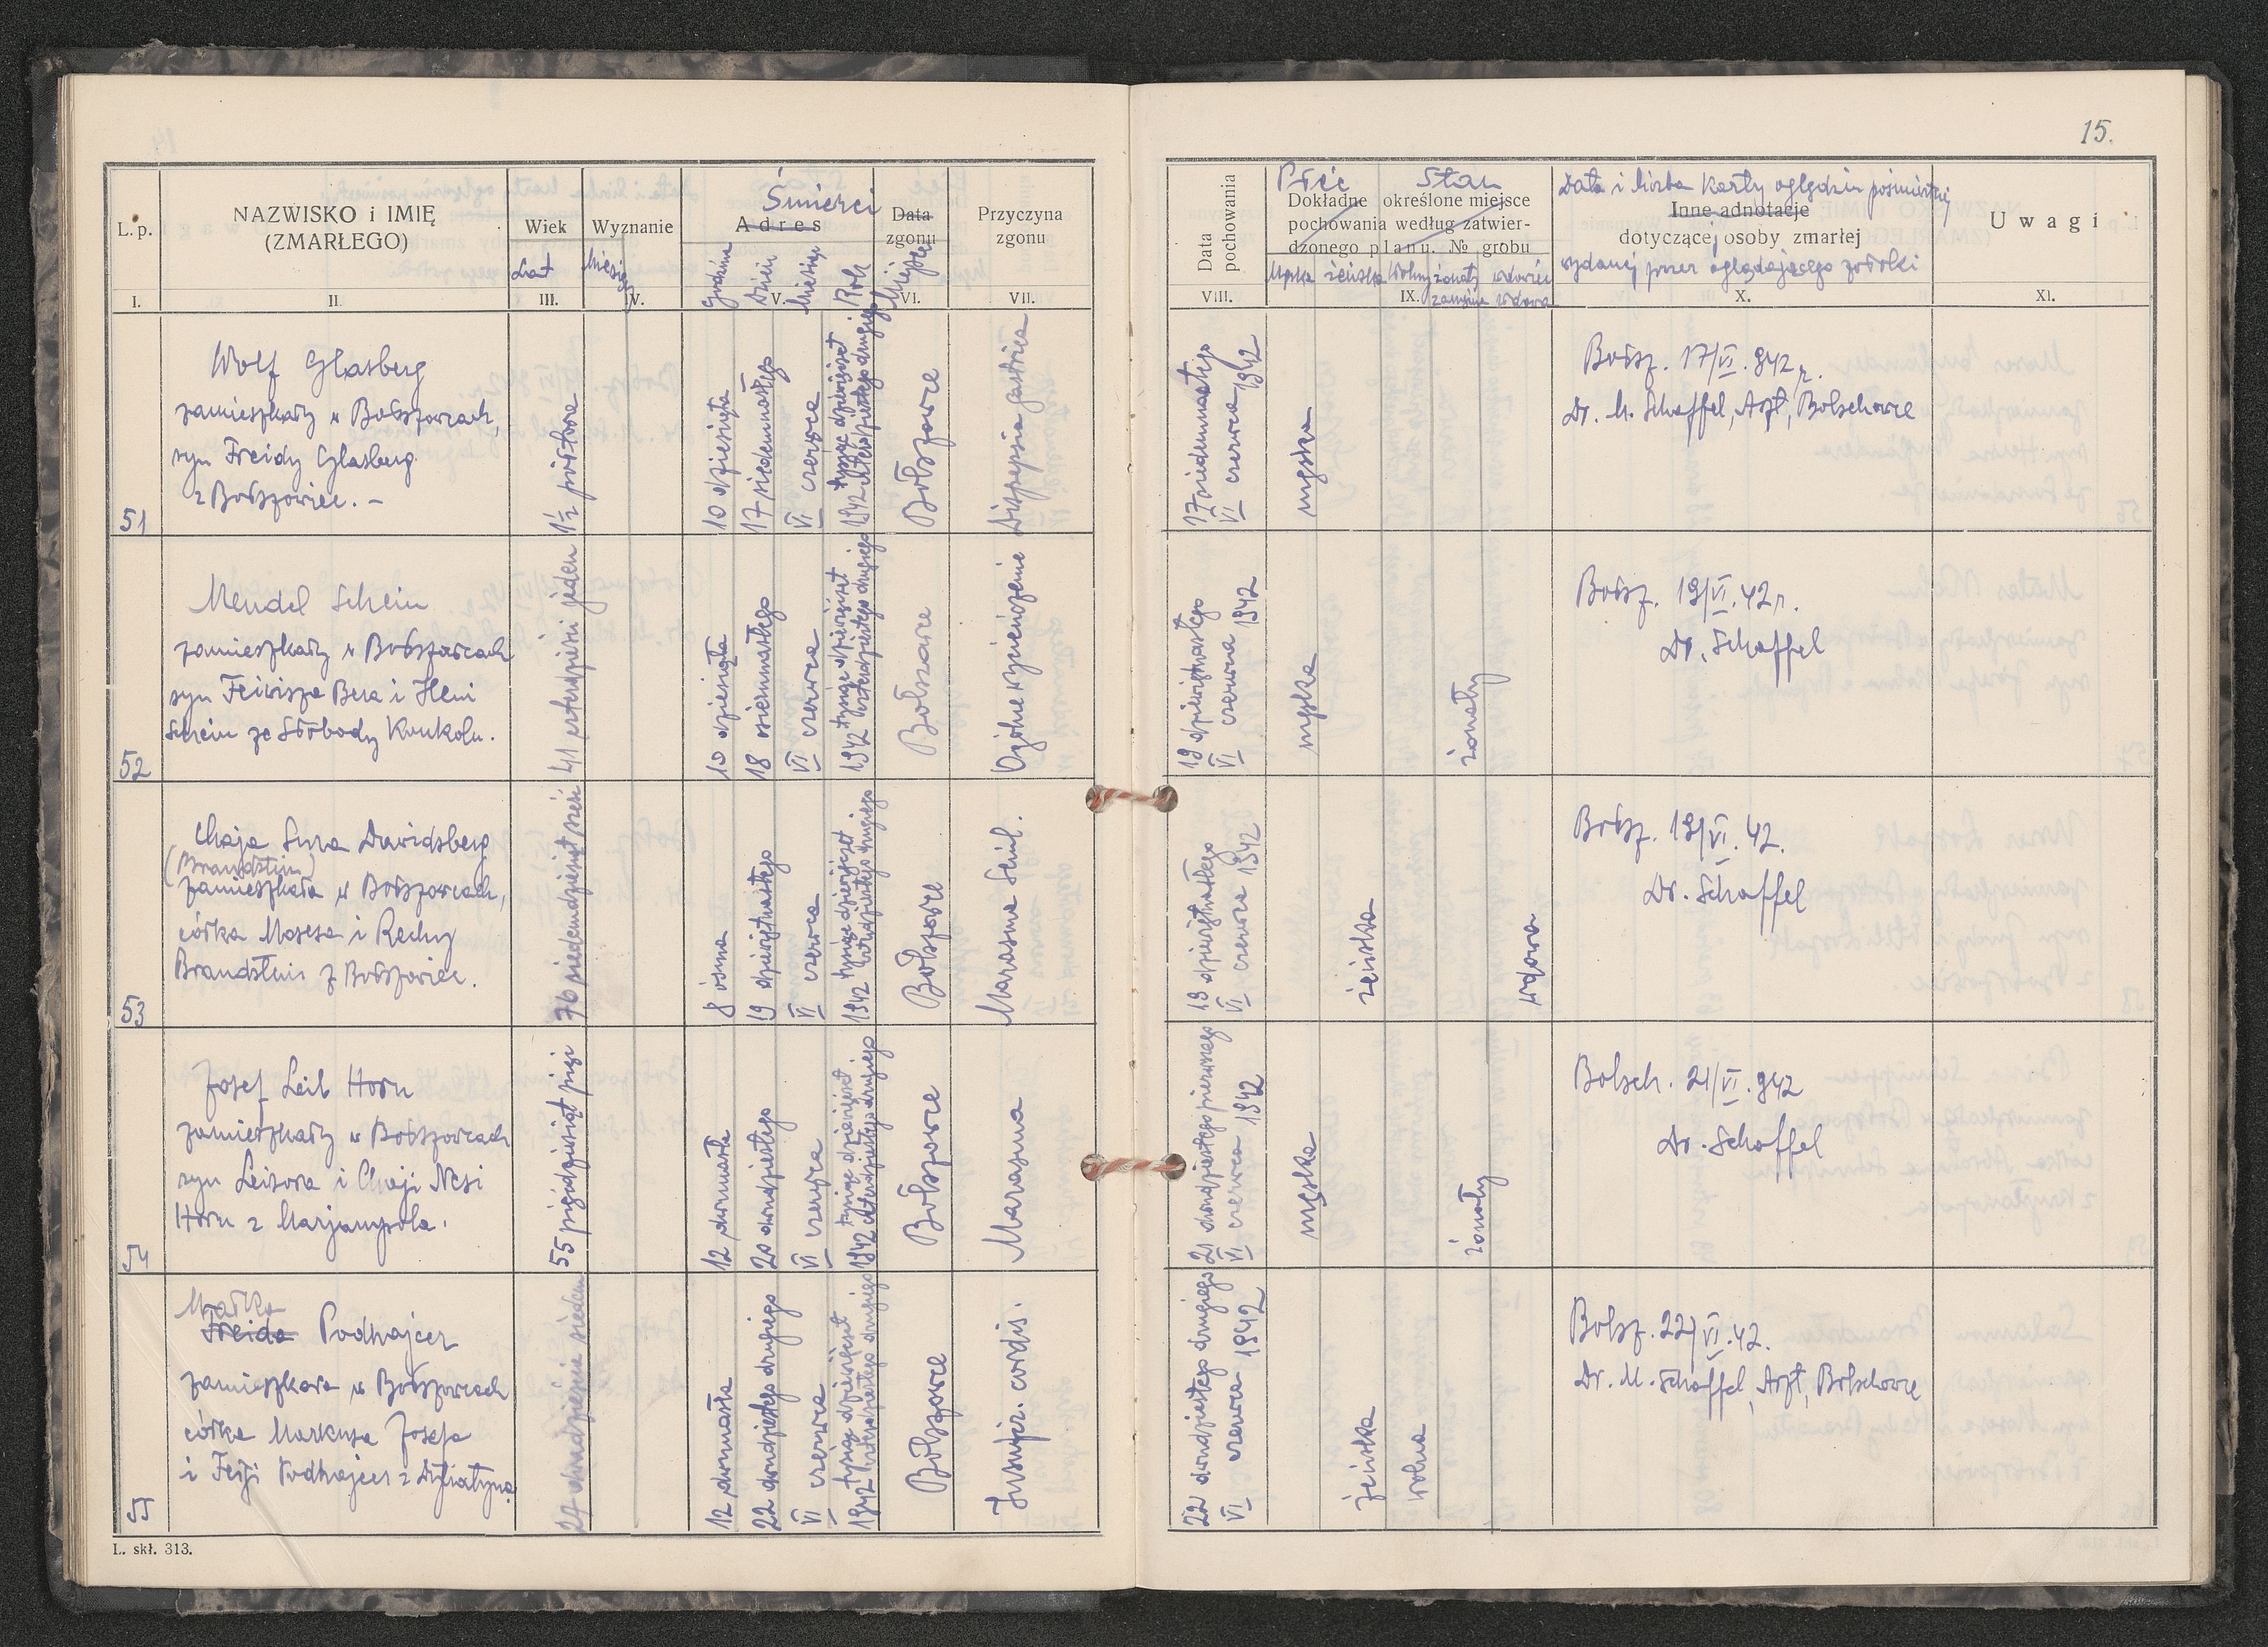 15.
L. p.
NAZWISKO i IMIĘ
(ZMARŁEGO)
Wiek
Lat
Wyznanie
Miesięcy
Śmierci
Adres
Godzina
Dzień
Miesiąc
Rok
Data
zgonu
Miejsce
Przyczyna
zgonu
I.
II.
III.
IV.
V.
VI.
VII.
Data
pochowania
Płeć
Stan
Dokładne określone miejsce
pochowania według zatwier-
dzonego planu. № grobu
Męska
żeńska
Wolny
żonaty
zamężna
wdowiec
wdowa
Data i liczba karty oględzin pośmiertnej
Inne adnotacje
dotyczącej osoby zmarłej
wydanej przez oglądającego zwłoki
Uwagi
VIII.
IX.
X.
XI.
51
Wolf Glasberg
zamieszkały w Bołszowcach,
syn Freidy Glasberg
z Bołszowiec. –
1½ półtora
10 dziesiąta
17 siedemnastego
VI czerwca
tysiąc dziewięćset
1942 czterdziestego drugiego
Bołszowce
Dispepsia gastrica
17 siedemnastego
VI czerwca 1942
męska
Bołsz. 17/VI. 942 r.
Dr. M. Schaffel, Arzt, Bolschowce
52
Mendel Schein
zamieszkały w Bołszowcach
syn Feiwisza Bera i Heni
Schein ze Słobody Konkoln.
41 czterdzieści jeden
10 dziesiąta
18 osiemnastego
VI czerwca
tysiąc dziewięćset
1942 czterdziestego drugiego
Bołszowce
Ogólne wycieńczenie
19 dziewiętnastego
VI czerwca 1942
męska
żonaty
Bołsz. 19/VI. 42 r.
Dr. Schaffel
53
Chaja Sura Davidsberg
(Brandstein)
zamieszkała w Bołszowcach,
córka Mosesa i Rechy
Brandstein z Bołszowiec.
76 siedemdziesiąt sześć
8 ósma
19 dziewiętnastego
VI czerwca
tysiąc dziewięćset
1942 czterdziestego drugiego
Bołszowce
Marasmus Senil.
19 dziewiętnastego
VI czerwca 1942
żeńska
wdowa
Bołsz. 19/VI. 42.
Dr. Schaffel
54
Josef Leib Horn
zamieszkały w Bołszowcach
syn Leizora i Chaji Nesi
Horn z Marjampola.
55 pięćdziesiąt pięć
12 dwunasta
20 dwudziestego
VI czerwca
tysiąc dziewięćset
1942 czterdziestego drugiego
Bołszowce
Marasmus
21 dwudziestego pierwszego
VI czerwca 1942
męska
żonaty
Bolsch. 21/VI. 942
Dr. Schaffel
55
Małka
Freida Podhajcer
zamieszkała w Bołszowcach
córka Markusa Josefa
i Feigi Podhajcer z
27 dwadzieścia siedem
12 dwunasta
22 dwudziestego drugiego
VI czerwca
tysiąc dziewięćset
1942 czterdziestego drugiego
Bołszowce
Insufic. cordis.
22 dwudziestego drugiego
VI czerwca 1942
żeńska
wolna
Bolsz. 22/VI. 42.
Dr. M. Schaffel, Arzt, Bolschowce
L. skł. 313.